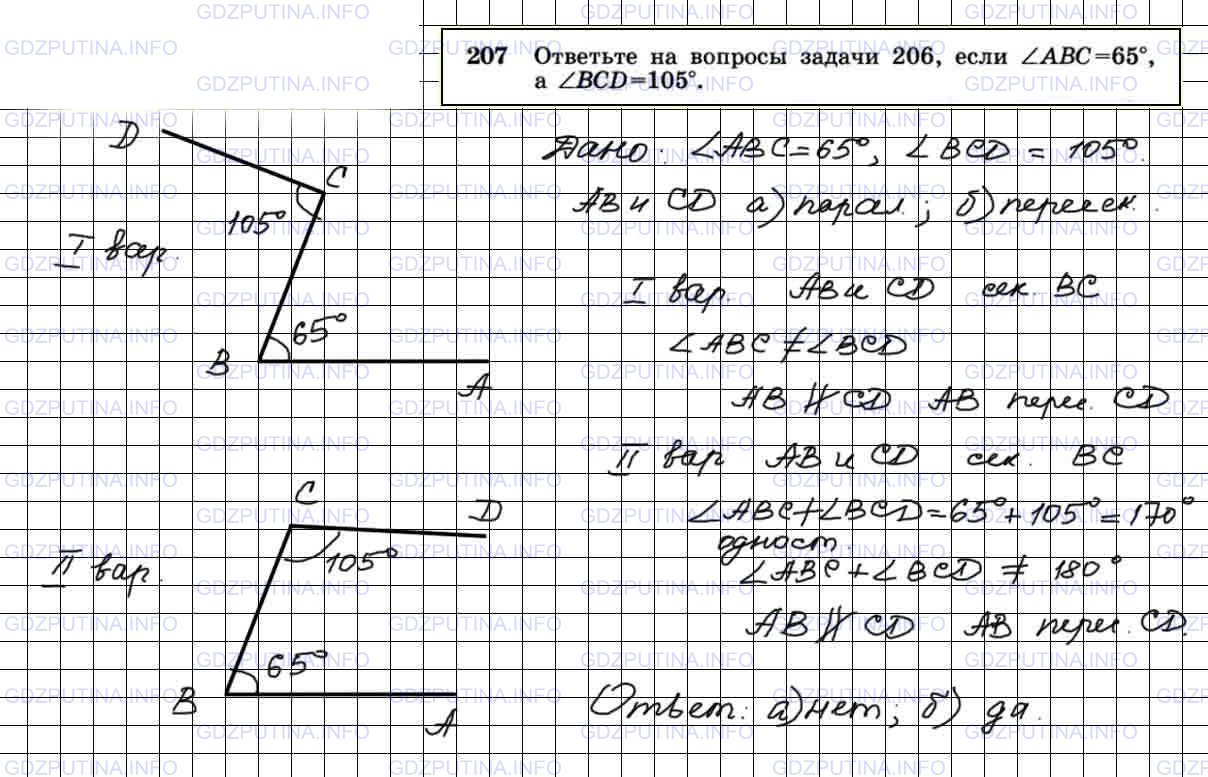 207 Ответьте на вопросы задачи 206, если ∠ABC=65°,
а ∠BCD=105°.
D
C
105°
I вар.
65°
B
A
Дано: ∠ABC=65°, ∠BCD = 105°.
AB и CD а) парал.; б) пересек.
I вар. AB и CD сек. BC
∠ABC ≠ ∠BCD
AB ∦ CD AB перес. CD
II вар AB и CD сек. BC
∠ABC+∠BCD=65°+105°=170°
одност.
∠ABC+∠BCD ≠ 180°
AB ∦ CD AB перес. CD.
Ответ: а) нет; б) да.
C
D
105°
II вар.
65°
B
A
GDZPUTINA.INFO